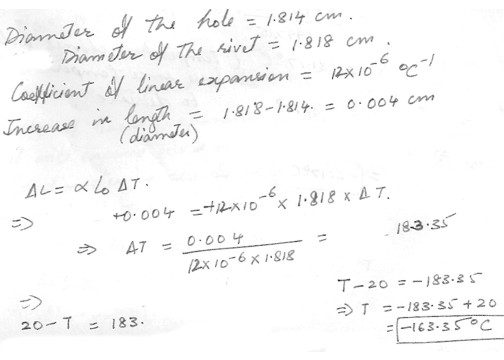 Diameter of the hole = 1.814 cm.
Diameter of The rivet = 1.818 cm.
Coefficient of linear expansion = 12x10^-6 °C^-1
Increase in length = 1.818-1.814. = 0.004 cm
(diameter)
ΔL = α L₀ ΔT.
=> +0.004 = +12x10^-6 x 1.818 x ΔT.
=> ΔT = 0.004 / 12x10^-6 x 1.818 = 183.35
T-20 = -183.35
=> T = -183.35 + 20
= -163.35°C
=>
20-T = 183.